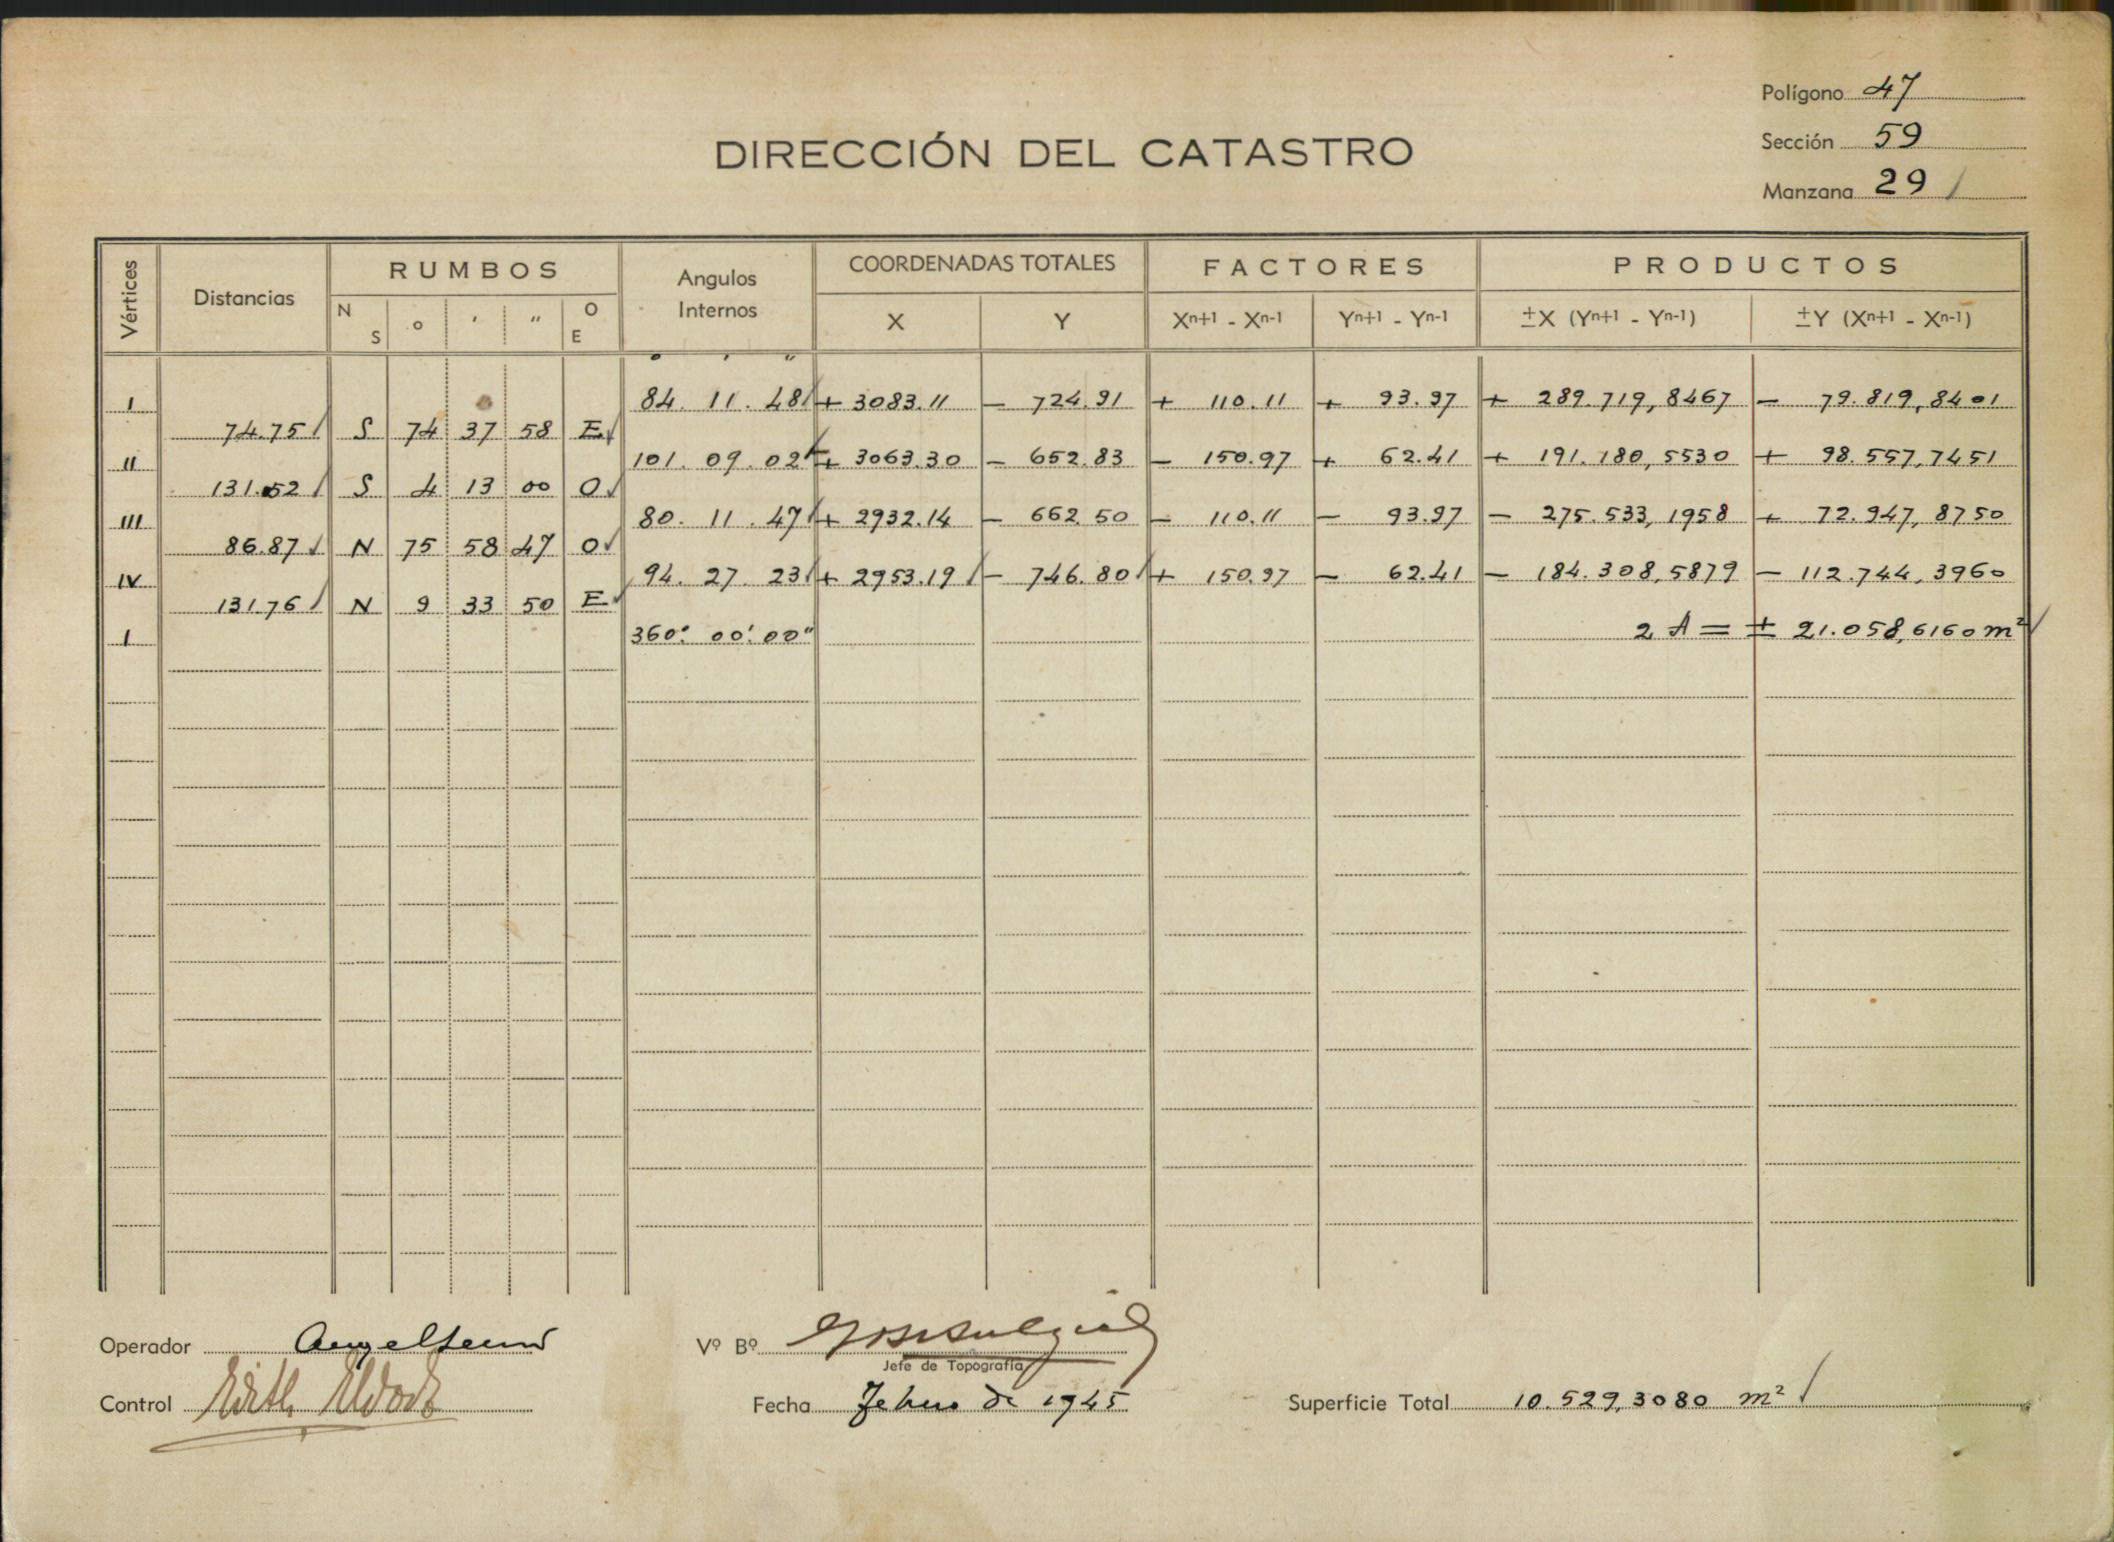 Polígono 47
Sección 59
Manzana 29
DIRECCIÓN DEL CATASTRO
Vértices Distancias RUMBOS Angulos Internos COORDENADAS TOTALES FACTORES PRODUCTOS
N S ° ' " O E X Y Xn+1 - Xn-1 Yn+1 - Yn-1 ±X (Yn+1 - Yn-1) ±Y (Xn+1 - Xn-1)
° ' "
I 84. 11. 48 + 3083.11 - 724.91 + 110.11 + 93.97 + 289.719,8467 - 79.819,8401
74.75 S 74 37 58 E
II 101. 09. 02 + 3063.30 - 652.83 - 150.97 + 62.41 + 191.180,5530 + 98.557,7451
131.52 S 4 13 00 O
III 80. 11. 47 + 2932.14 - 662.50 - 110.11 - 93.97 - 275.533,1958 + 72.947,8750
86.87 N 75 58 47 O
IV 94. 27. 23 + 2953.19 - 746.80 + 150.97 - 62.41 - 184.308,5879 - 112.744,3960
131.76 N 9 33 50 E
I 360° 00' 00" 2 A = ± 21.058,6160 m²
Operador
Vº Bº
Jefe de Topografía
Control
Fecha Febrero de 1945
Superficie Total 10.529,3080 m²